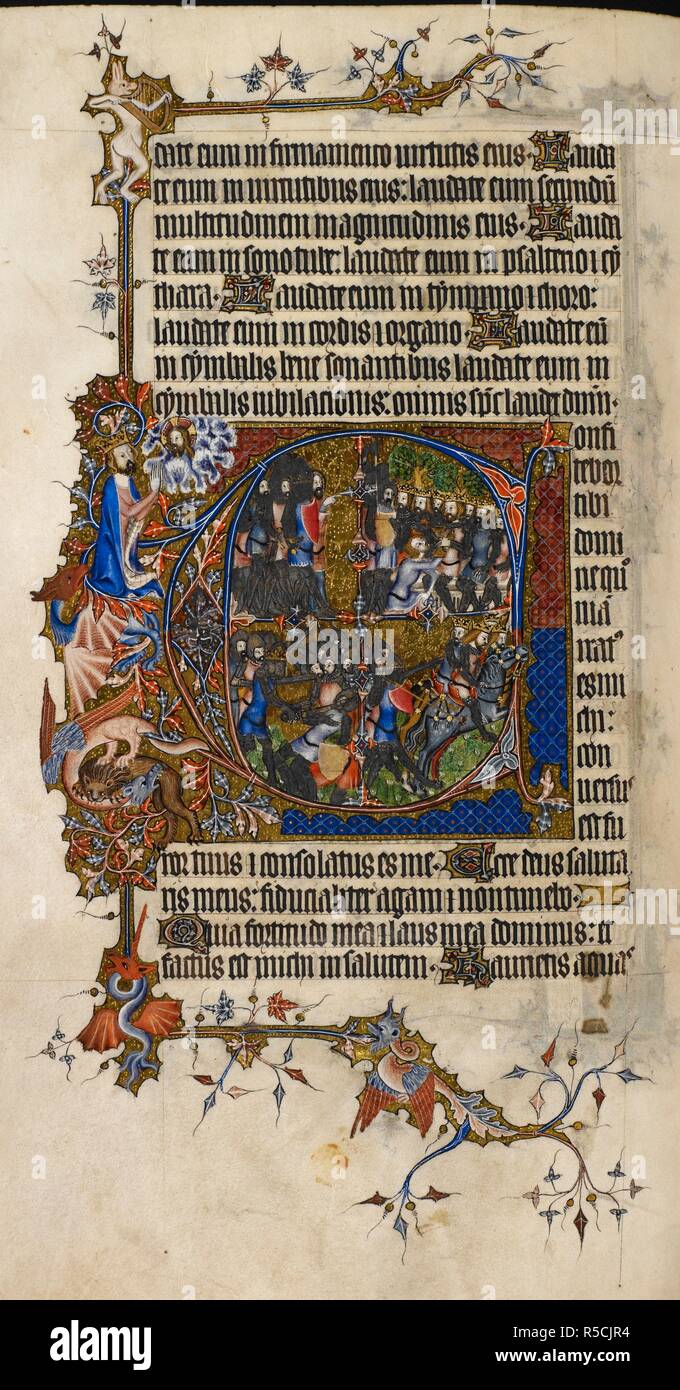 date eum in firmamento uirtutis eius. Lauda
te eum in uirtutibus eius: laudate eum secundū
multitudinem magnitudinis eius. Lauda
te eum in sono tube: laudate eum in psalterio ⁊ cy
thara. Laudate eum in tympano ⁊ choro:
laudate eum in cordis ⁊ organo. Laudate eū
in cymbalis bene sonantibus laudate eum in
cymbalis iubilacionis: omnis spc laudet dnm.
Confi
tebor
tibi
domi
ne quō
iam
iratꝰ
es mi
chi:
con
uersus
est fu
ror tuus ⁊ consolatus es me. Ecce deus saluta
ris meus: fiducialiter agam ⁊ non timebo.
Quia fortitudo mea ⁊ laus mea dominus: et
factus est michi in salutem. Haurietis aquas
a
alamy
alamy
Image ID: R5CJR4
www.alamy.com